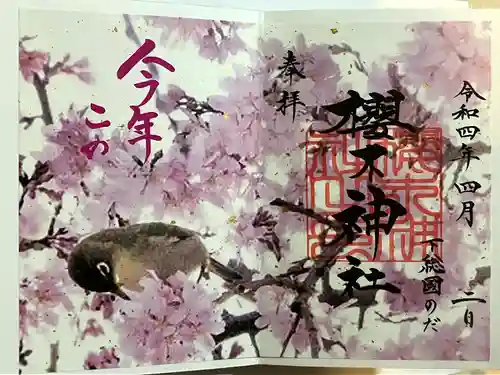 令和四年四月二日
奉拝
櫻木神社
下総國のだ
今年
この